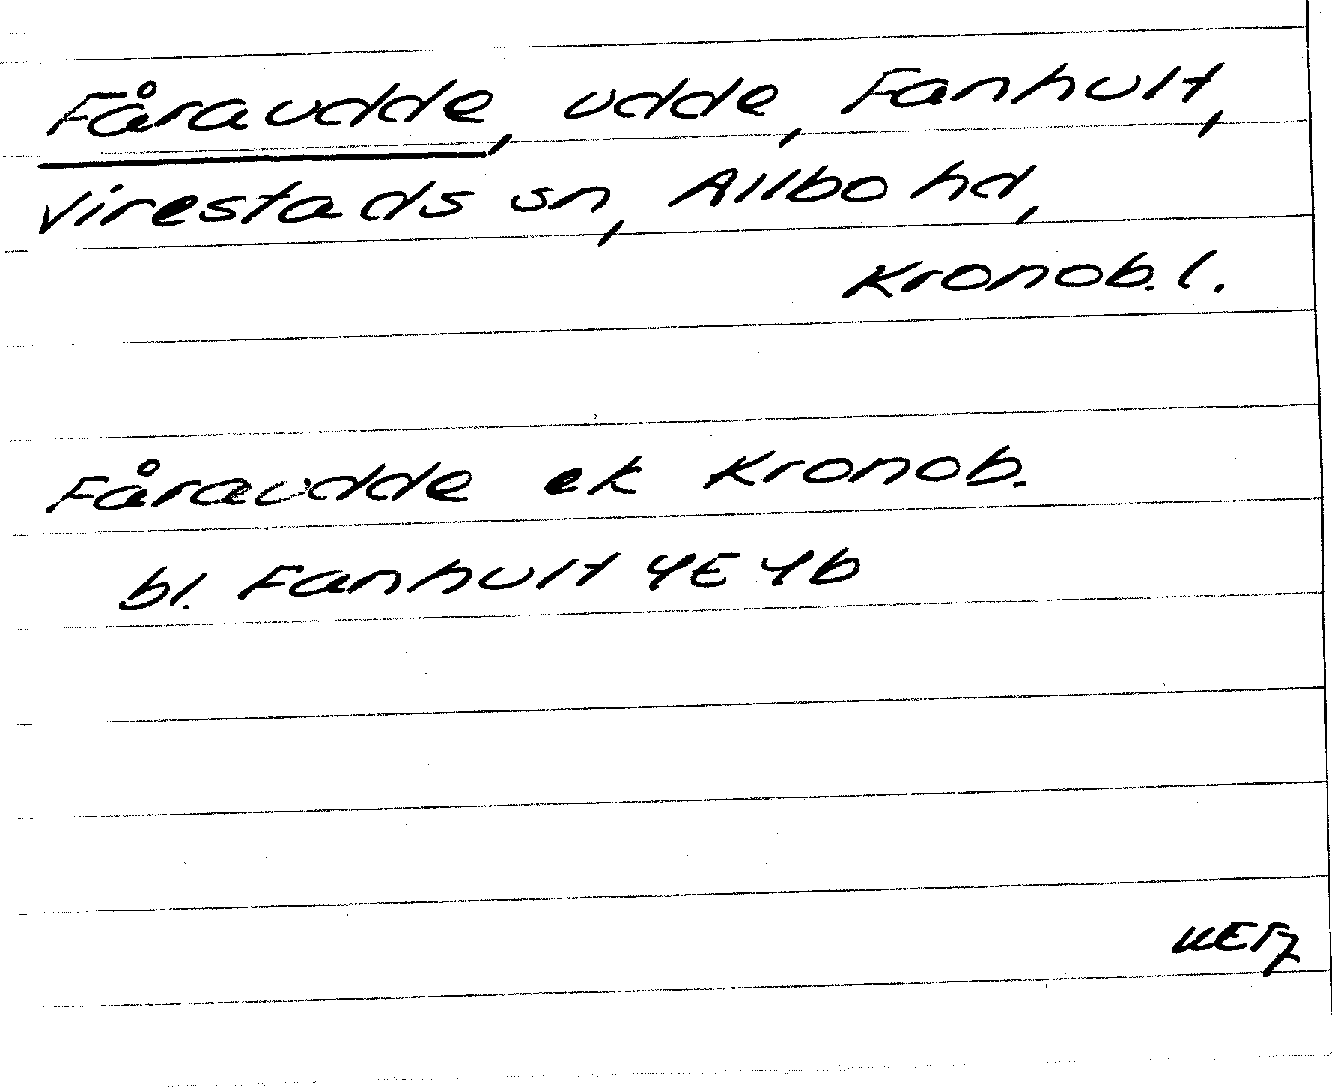 Fåraudde, udde, Fanhult,
Virestads sn, Allbo hd,
Kronob. l.
Fåraudde ek Kronob.
bl. Fanhult 4E 4b